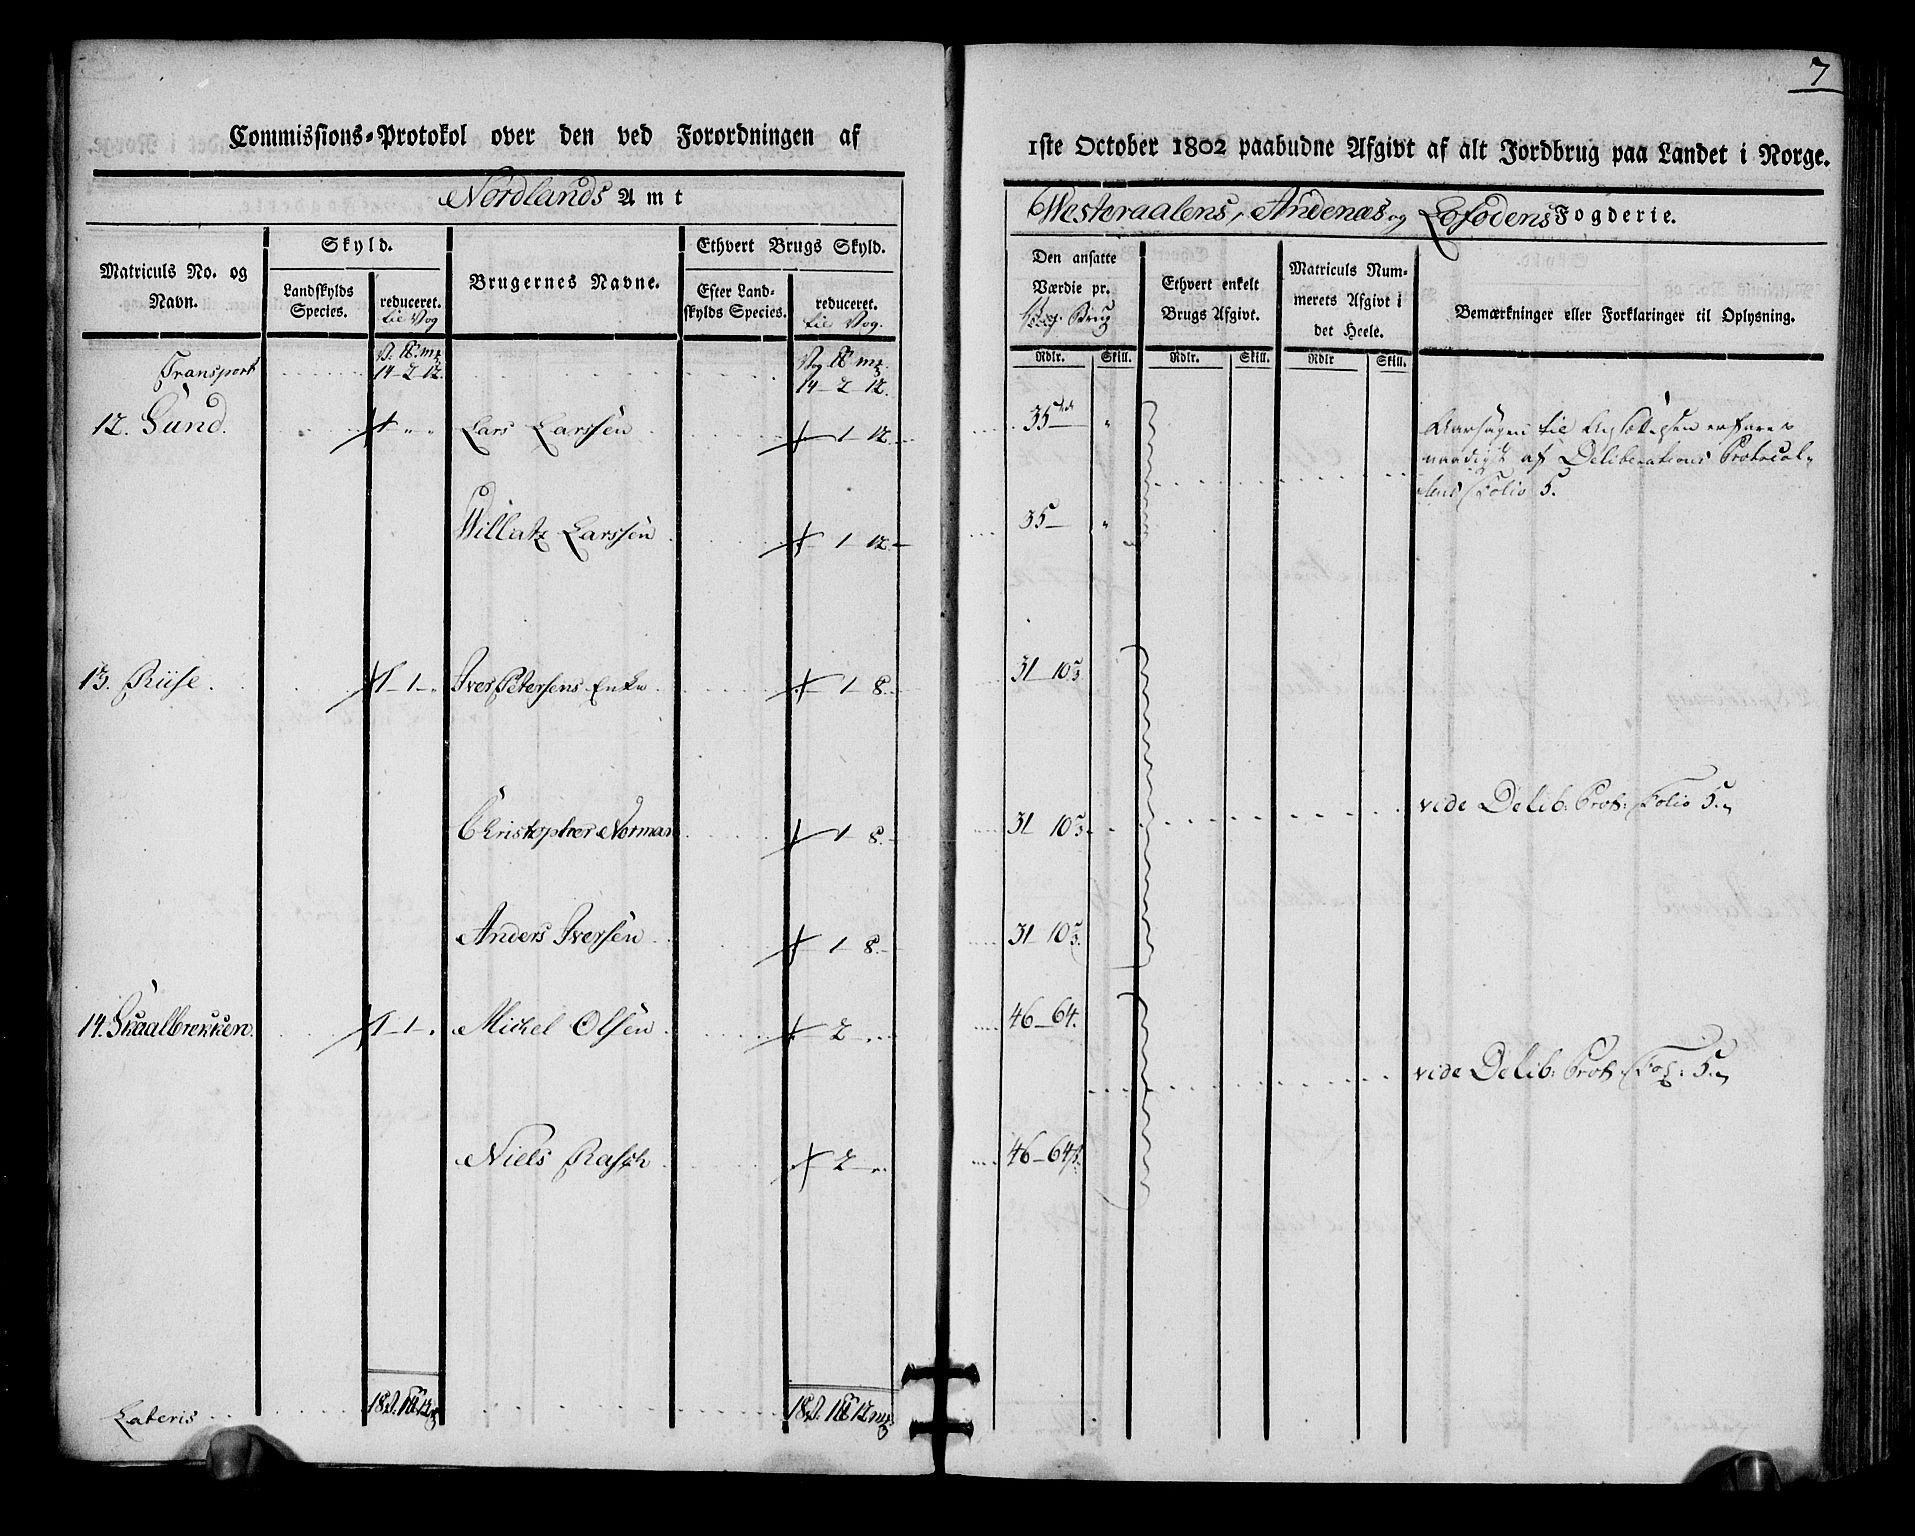 7
Commissions-Protokol over den ved Forordningen af
1ste October 1802 paabudne Afgivt af alt Jordbrug paa Landet i Norge.
Nordlands Amt
Westeraalens, Andenæs og Lofodens Fogderie.
Matriculs No. og Navn.
Skyld.
Landskylds Species.
reduceret. til Vog
Brugernes Navne.
Ethvert Brugs Skyld.
Efter Landskylds Species.
reduceret. til Vog.
Den ansatte Værdie pr. Brug
Ethvert enkelt Brugs Afgivt.
Matriculs Nummerets Afgivt i det Heele.
Bemærkninger eller Forklaringer til Oplysning.
Rdlr. Skill. Rdlr. Skill. Rdlr Skill.
Transport 14-2-12. 14-2-12.
12. Sund. 1 " " Lars Larssen 1 12 35 "
Aarsagen til Ansættelsen erfares
naadigst af Deliberations Protocol-
lens Folio 5.
Willatz Larssen 1 12 35 "
13. Riise 1-1-" Iver Petersens Enke 1 8 31 10⅔
Christopher Norman 1 8 31 10⅔
vide Delib: Prot: Folio 5.
Anders Iversen 1 8 31 10⅔
14. Skaalbrekken 1-1 " Michel Olsen 2 " 46-64.
vide Delib: Prot: Fol: 5.
Niels Rasch 2 " 46-64
Lateris 18 12 18 12